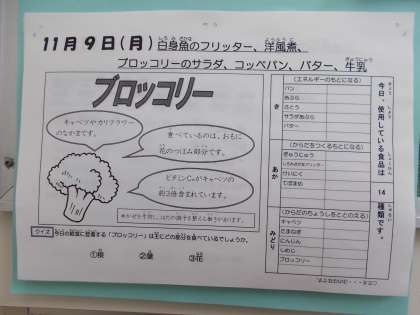 11月9日(月)白身魚のフリッター、洋風煮、
ブロッコリーのサラダ、コッペパン、バター、牛乳
ブロッコリー
キャベツやカリフラワー
のなかまです。
食べているのは、おもに
花のつぼみ部分です。
ビタミンCがキャベツの
約3倍含まれています。
クイズ 今日の給食に登場する「ブロッコリー」は主にどの部分を食べているでしょうか。
①根 ②葉 ③花
今日、使用している食品は 14 種類です。
き
(エネルギーのもとになる)
パン
あぶら
さとう
サラダあぶら
バター
あか
(からだをつくるもとになる)
ぎゅうにゅう
みどり
(からだのちょうしをととのえる)
キャベツ
たまねぎ
にんじん
しめじ
ブロッコリー